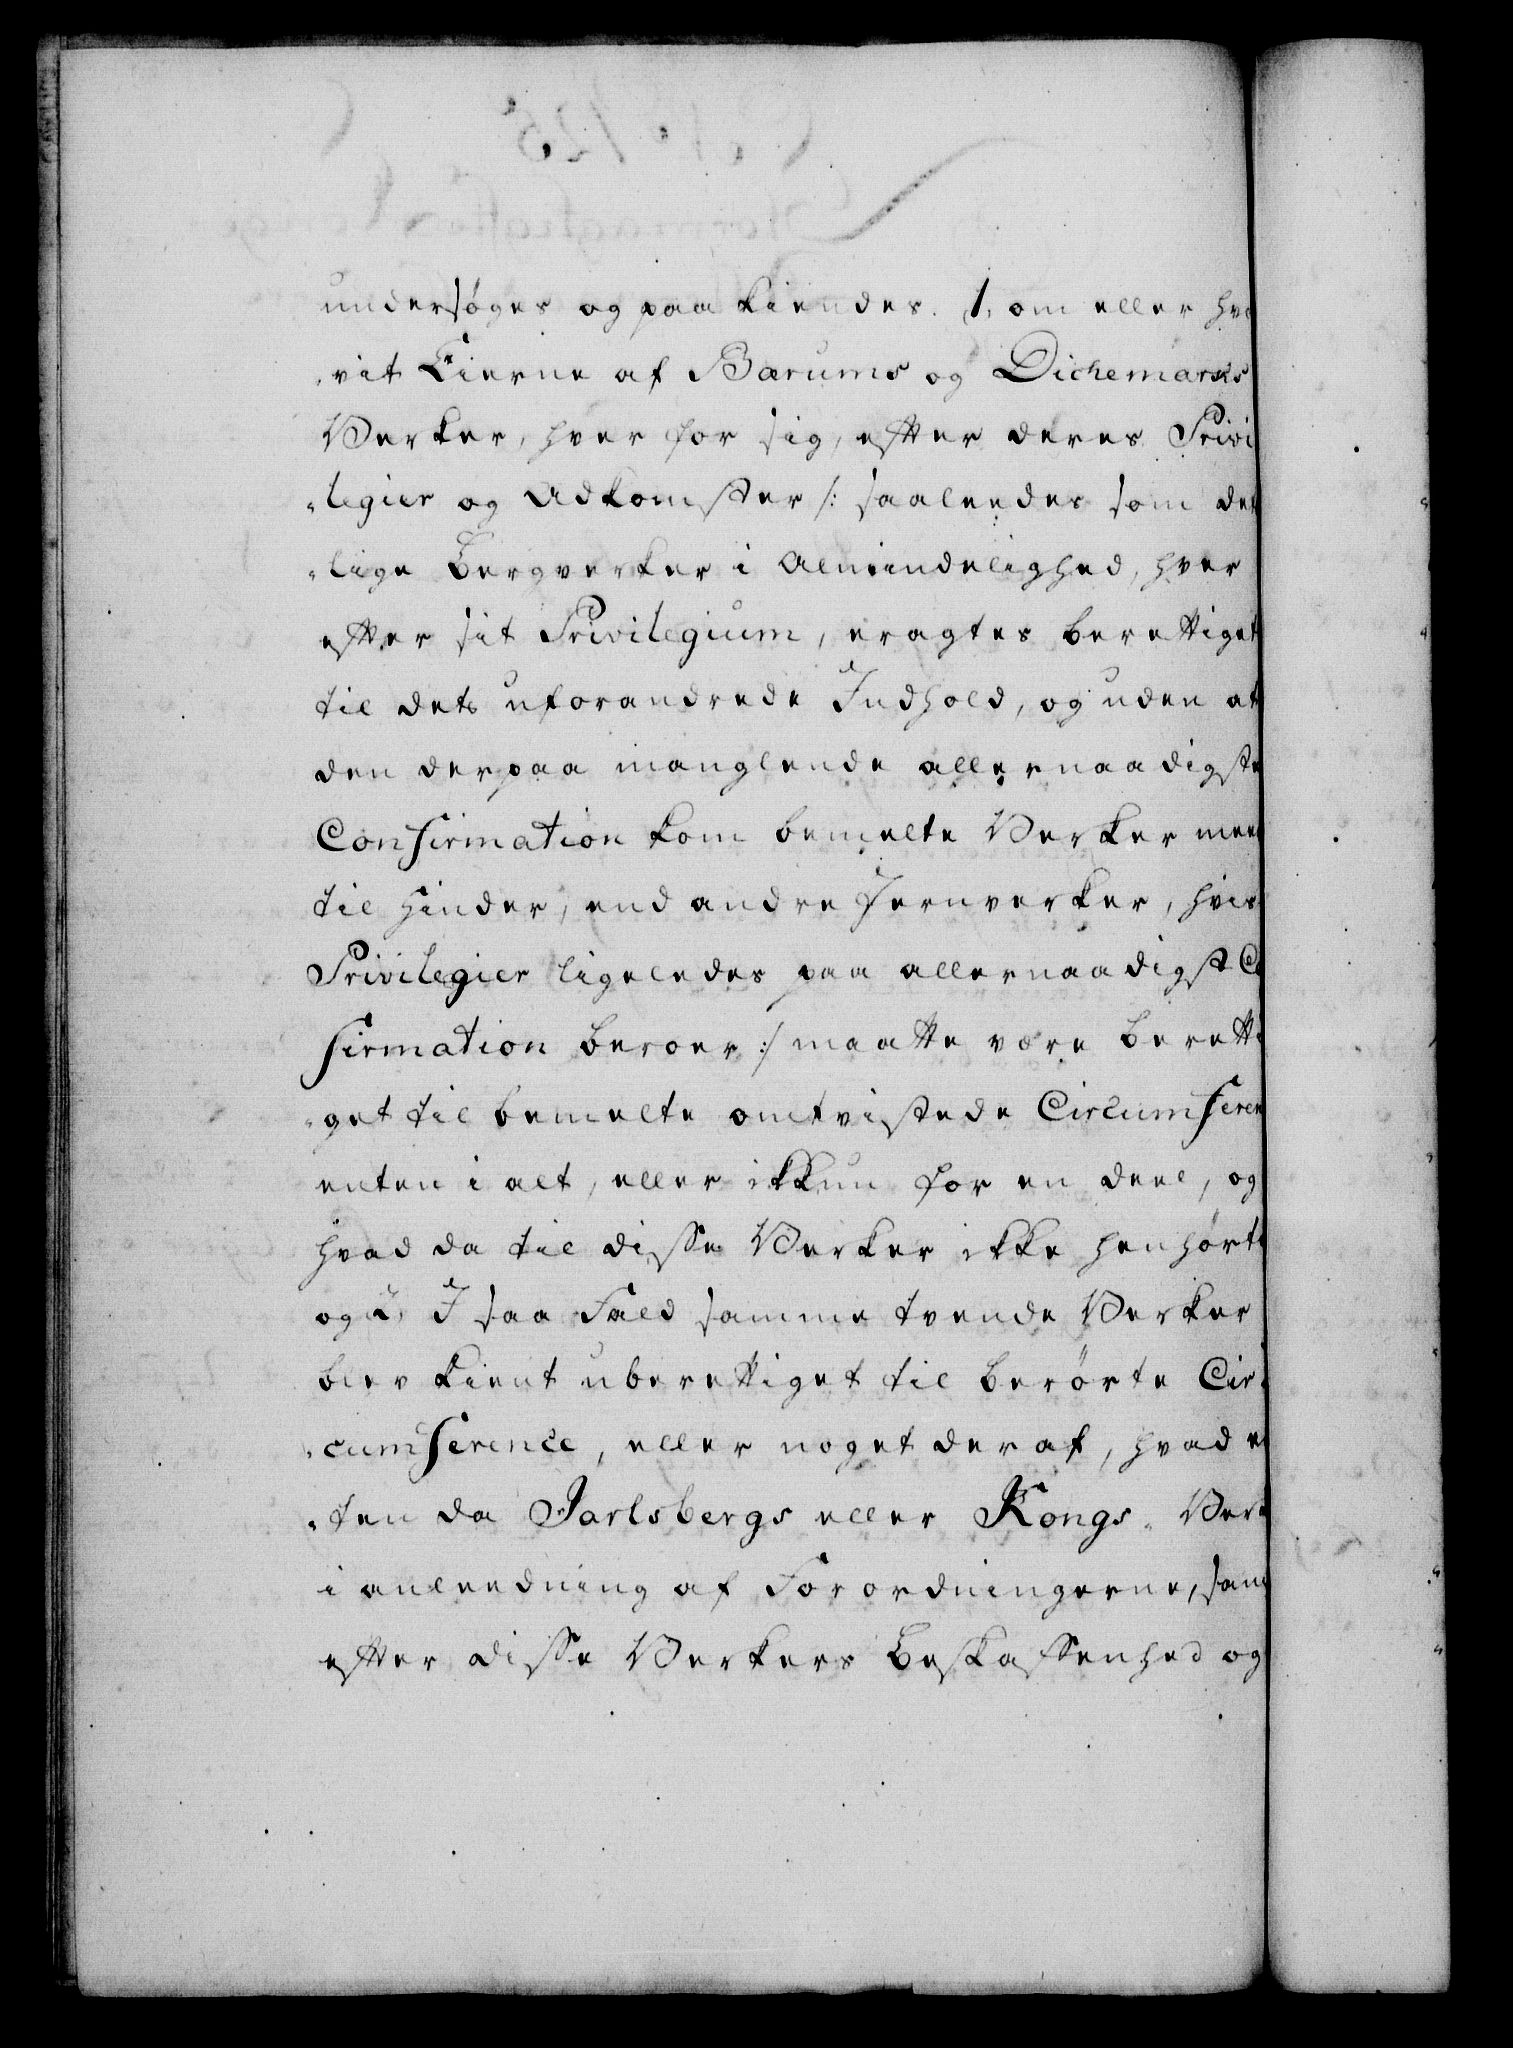 undersøges og paa kiendes. 1, om eller hvo
-vit Eierne af Bærums og Dichemarks
Verker, hver for sig, efter deres Privi
-legier og Adkomster /: saaleedes som det
-lige Bergverker i Almindelighed, hver
efter sit Privilegium, eragtes berettiget
til dets uforandrede Indhold, og uden at
den derpaa manglende allernaadigste
Confirmation kom bemelte Verker meer
til Hinder, end andre Jernverker, hvis
Privilegier ligeledes paa allernaadigst Co
firmation beroer :/ maatte være beretti
-get til bemelte omtvistede Circumferen
enten i alt, eller ikkun for en deel, og
hvad da til disse Verker ikke henhørte
og 2, I saa Fald samme tvende Verker
blev kient uberettiget til berørte Cir
-cumference, eller noget deraf, hvad e
-ten da Jarlsbergs eller Kongs- Verk
i anleedning af Forordningerne, sam
efter disse Verkers Beskaffenhed og